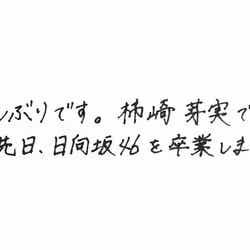 しぶりです。柿崎芽実で
先日、日向坂46を卒業しま